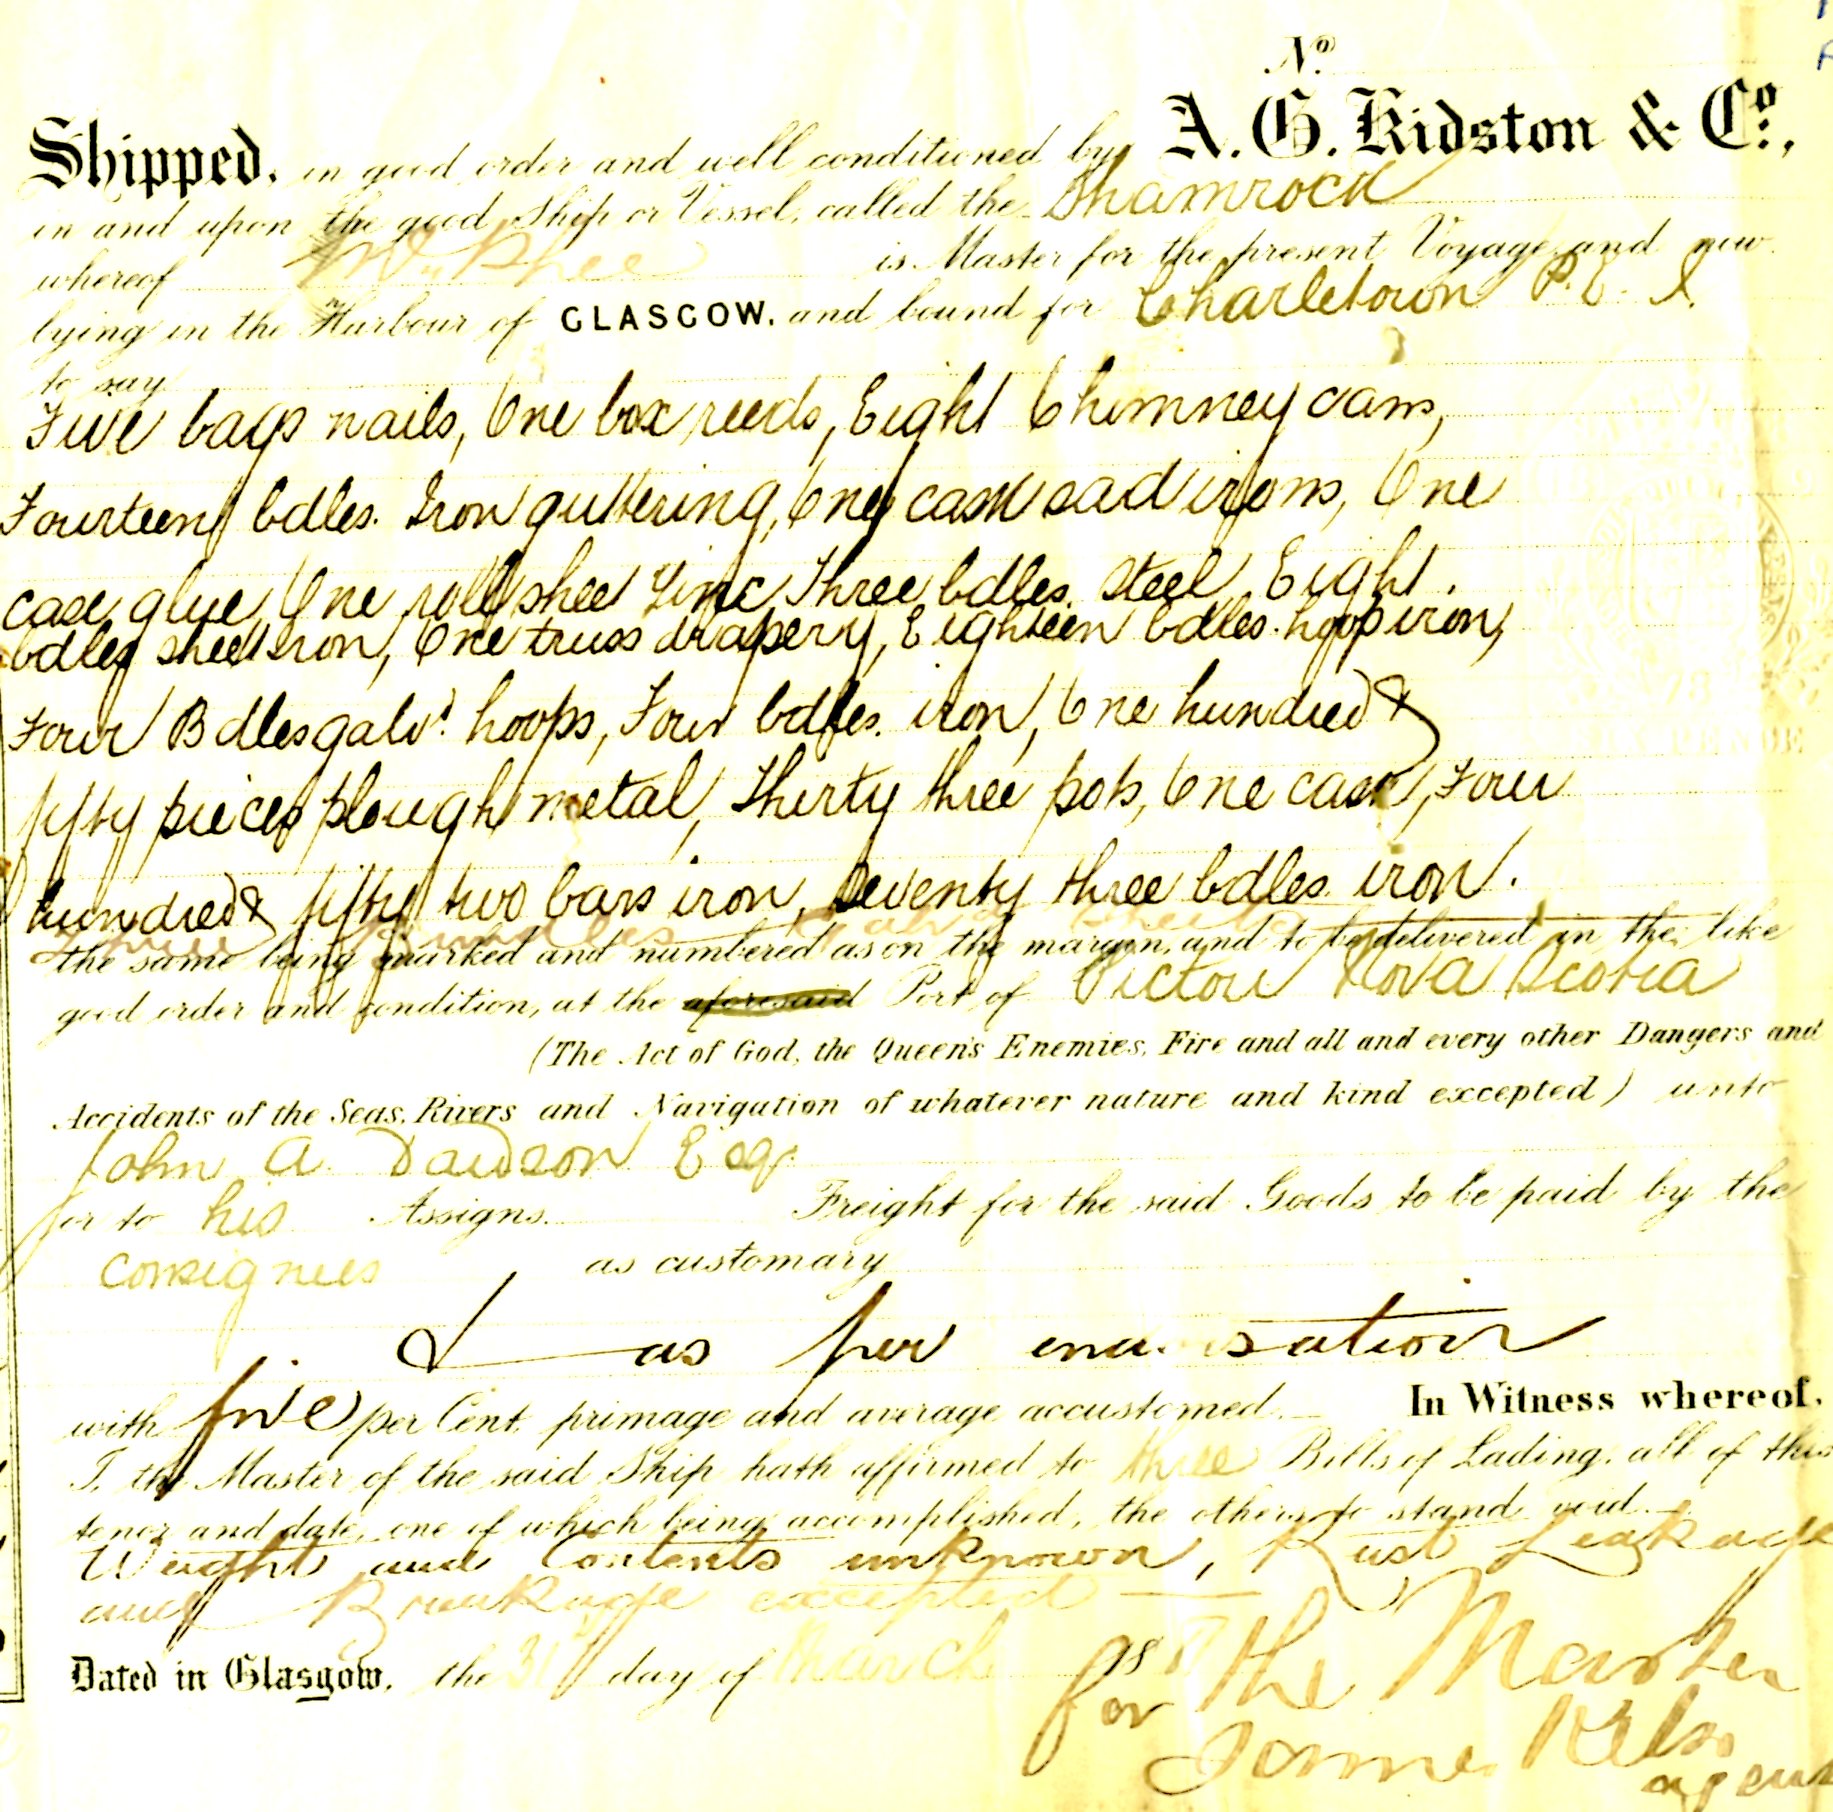 No.
Shipped, in good order and well conditioned by A. G. Kidston & Co.,
in and upon the good Ship or Vessel, called the Shamrock
whereof McPhee is Master for the present Voyage and now
lying in the Harbour of GLASGOW, and bound for Charletown P.E.I.
to say
Five bags nails, One box reeds, Eight Chimney cans,
Fourteen bdles. Iron guttering, One cask sad irons, One
case glue, One roll sheet Zinc, Three bdles. steel, Eight
bdles sheet iron, One truss drapery, Eighteen bdles. hoop iron,
Four Bdles galvd. hoops, Four bdles. iron, One hundred &
fifty pieces plough metal, Thirty three pots, One cask, Four
hundred & fifty two bars iron, Seventy three bdles iron.
the same being marked and numbered as on the margin, and to be delivered in the like
good order and condition, at the aforesaid Port of Pictou Nova Scotia
(The Act of God, the Queen's Enemies, Fire and all and every other Dangers and
Accidents of the Seas, Rivers and Navigation of whatever nature and kind excepted) unto
John A. Dawson Esq.
or to his Assigns. Freight for the said Goods to be paid by the
consignees as customary
as per
with five per Cent. primage and average accustomed. In Witness whereof,
I, the Master of the said Ship hath affirmed to three Bills of Lading, all of this
tenor and date, one of which being accomplished, the others to stand void.
Weight and Contents unknown, Rust Leakage
and Breakage excepted
Dated in Glasgow, the 31st day of March
for The Master
James Kelso
agent
SIXPENCE